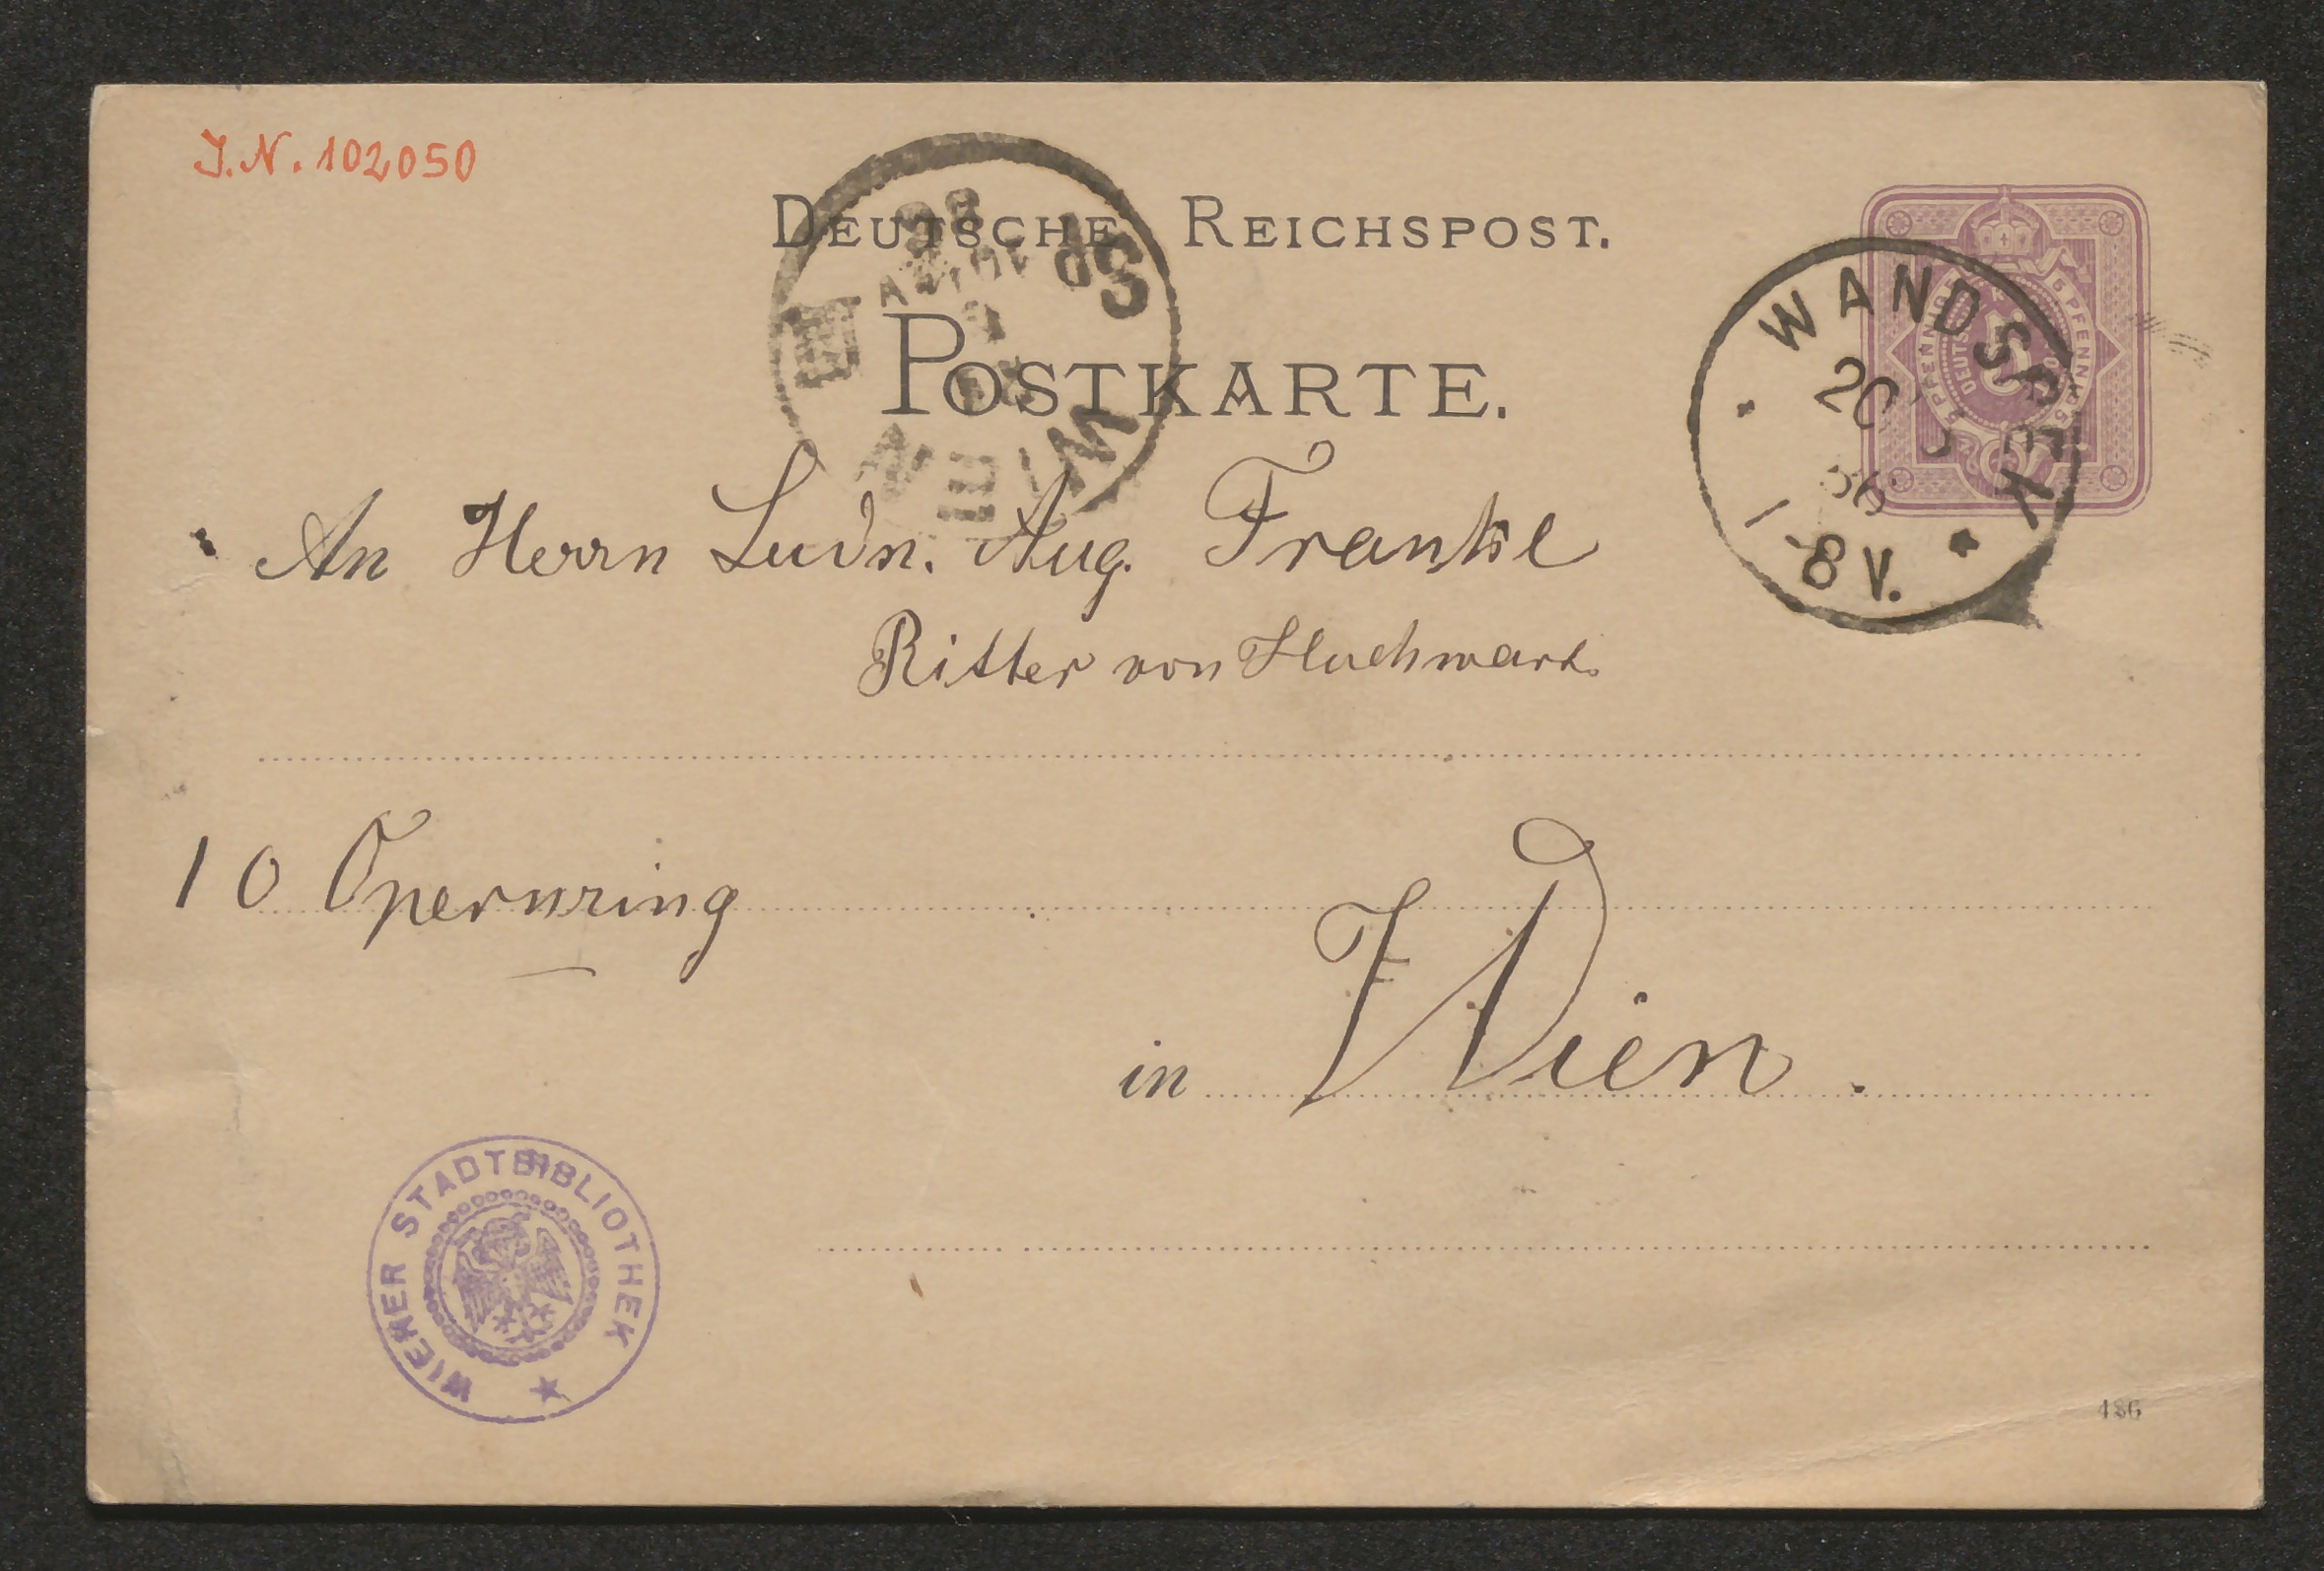 J.N. 102050
DEUTSCHE REICHSPOST.
POSTKARTE.
WANDSBEK
20
86
7-8 V.
WIEN
An Herrn Ludw. Aug. Frankl
Ritter von Hochwart.
10 Opernring
in Wien.
WIENER STADTBIBLIOTHEK
486